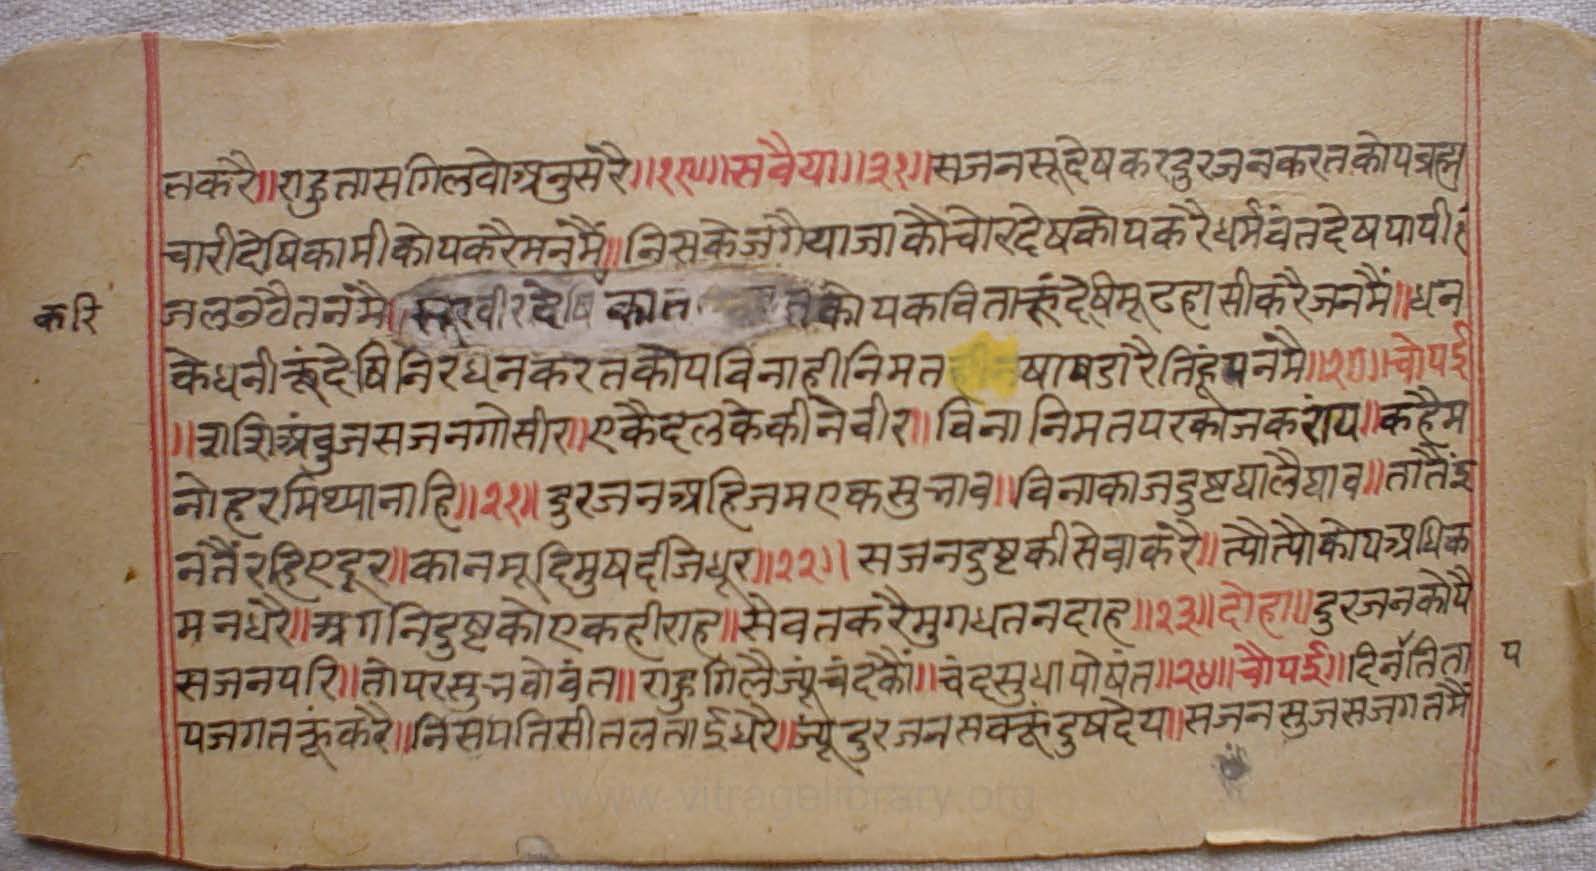 तकरै॥राहुतासगिलवोअनुसरै॥१९॥सवैया॥३१॥सजनसूदेषकरदुरजनकरतकोपब्रह्म
चारीदेषिकामीकोपकरैमनमैं॥निसकेजगैयाजाकौचोरदेषकोपकरैधर्मवंतदेषपापी
करि
जलनवैतनमै॥सूरवीरदेषि कोपकविताकूंदेषिमूढहासीकरैजनमैं॥धन
केधनीकूंदेषिनिरधनकरतकोपविनाहीनिमत षाषडारैतिंहूपनमै॥२०॥चोपई
॥शशिअंबुजसजनगोसीर॥एकैदलकेकीनेवीर॥विनानिमतपरकाजकराय॥कहैम
नोहरमिथ्यानाहि॥२१॥दुरजनअहिजमएकसुभाव॥विनाकाजदुष्टघालैघाव॥तातैंइ
नतैंरहिएदूर॥कानमूदिमुषदजिधूर॥२२॥सजनदुष्टकीसेवाकरै॥त्यौत्यौकोपअधिक
मनधरै॥अगनिदुष्टकोएकहीराह॥सेवतकरैमुगधतनदाह॥२३॥दोहा॥दुरजनकोपै
सजनपरि॥तोपरसुभवोवंत॥राहुगिलैज्यूंचंदकौं॥चंदसुधापोषंत॥२४॥चौपई॥दिनॅतिता
प
पजगतकूंकरै॥निसपतिसीतलताईधरै॥ज्यूंदुरजनसबकूंदुषदेय॥सजनसुजसजगतमैं
www.vitragelibrary.org